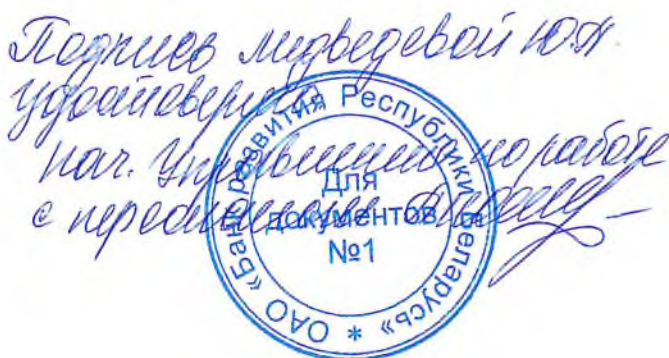 Подпись Медведевой Ю.А.
удостоверяю
нач. управления по работе
с персоналом
ОАО «Банк развития Республики Беларусь» *
Для
документов
№1